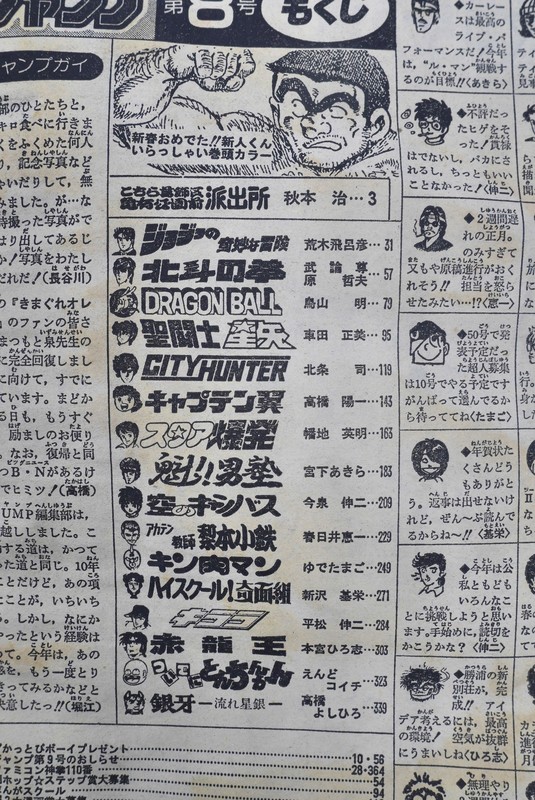 ジャンプ
第8号
もくじ
新春おめでた!!新人くん
いらっしゃい巻頭カラー
こちら葛飾区亀有公園前派出所 秋本 治…3
ジョジョの奇妙な冒険 荒木飛呂彦…31
北斗の拳 武論尊 原哲夫…57
DRAGON BALL 鳥山 明…79
聖闘士星矢 車田 正美…95
CITY HUNTER 北条 司…119
キャプテン翼 高橋 陽一…143
スカア爆発 幡地 英明…163
魁!!男塾 宮下あきら…183
空のキャンバス 今泉 伸二…209
アカテン教師 梨本小鉄 春日井恵一…229
キン肉マン ゆでたまご…249
ハイスクール!奇面組 新沢 基栄…271
キララ 平松 伸二…284
赤龍王 本宮ひろ志…303
ついでにとんちんかん えんどコイチ…323
銀牙—流れ星銀— 高橋よしひろ…339
かっとびボーイプレゼント
ジャンプ第9号のおしらせ 10・56
ファミコン神拳110番 28・364
ホップ☆ステップ賞大募集 54
まんがスクール 94
ャンプガイ
部のひとたちと、
キロ食べに行きま
くをふくめた何人
り、記念写真など
ゃいだりして、無
みました。が…な
時撮った写真がで
はり出してあるじ
か!写真をわたし
だれだ!(長谷川)
の『きまぐれオレ
』のファンの皆さ
まつもと泉先生の
に完全回復しまし
に向けて、すでに
ています。まどか
る日も、もうすぐ
、励ましのお便り
。なお、復帰と同
つB・Nがあるけ
でヒミツ!(高橋)
UMP編集部は、
越ししました。こ
する道は、かつて
った道と同じ。10年
ことだけど、あの項
ことが、いちいち
る。しかし、なにか
やったという経験は
って。今年は、あの
惑を、もう一度とり
さってみるかなどと
決意したっ!!(堀江)
◆カーレー
スは最高の
ライブ・パ
フォーマンスだ!今年
は、“ル・マン”観戦す
るのが目標!!(あきら)
◆不評だっ
たヒゲをそ
った!貫禄
はでないし、バカにさ
れるし、ちっともいい
ことなかった!〈伸二〉
◆2週間遅
れの正月。
のみすぎて
又もや原稿進行がおく
れそう!!担当を怒ら
せたみたい…!?〈恵一〉
◆50号で発
表予定だっ
た超人募集
は10号でやる予定です
がんばって選んでるか
ら待っててね〈たまご〉
◆年賀状た
くさんどう
もありがと
う。返事は出せないけ
れど、ぜん〜ぶ読んで
るからねー!!〈基栄〉
◆今年は公
私ともども
いろんなこ
とに挑戦しようと思い
ます。手始めに、読切を
かこうかな?〈伸二〉
◆勝浦の新
別荘が、完
成!!アイ
デア考えるには、最高
の環境!空気が抜群
にうまいしね〈ひろ志〉
◆無理やり